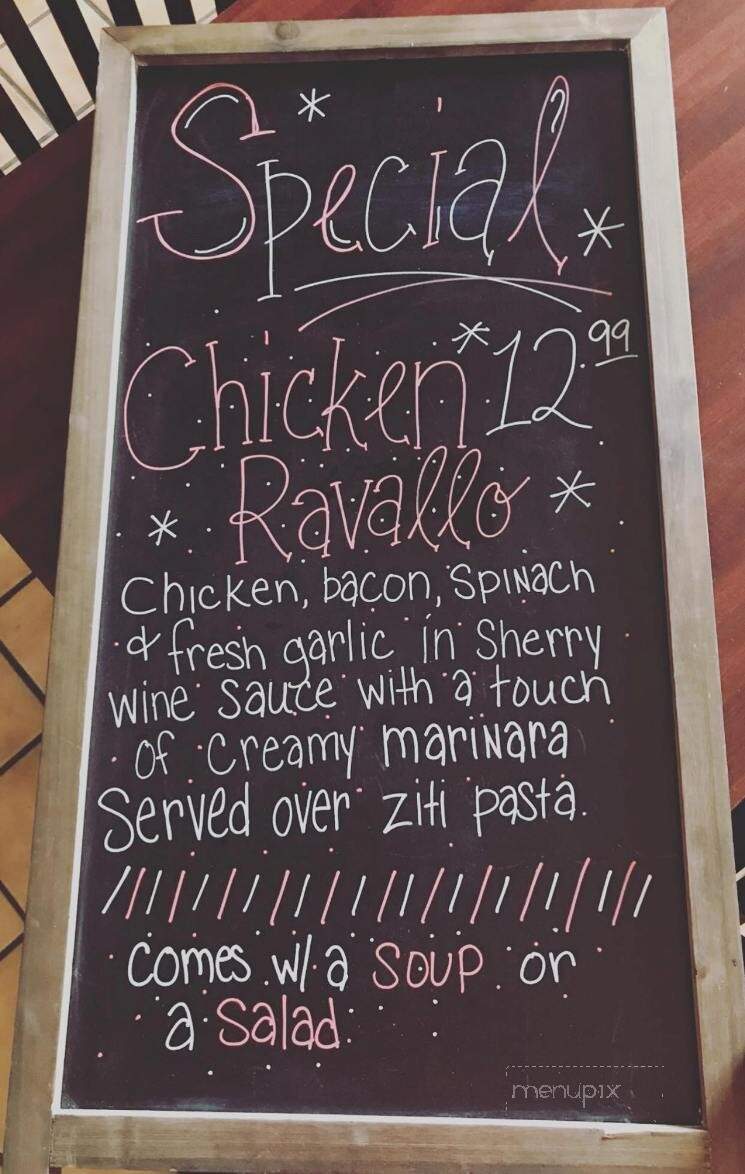 Special
Chicken 12.99
Ravallo
Chicken, bacon, Spinach
& fresh garlic in Sherry
wine Sauce with a touch
of Creamy marinara
Served over ziti pasta.
Comes w/ a Soup or
a Salad
menupix